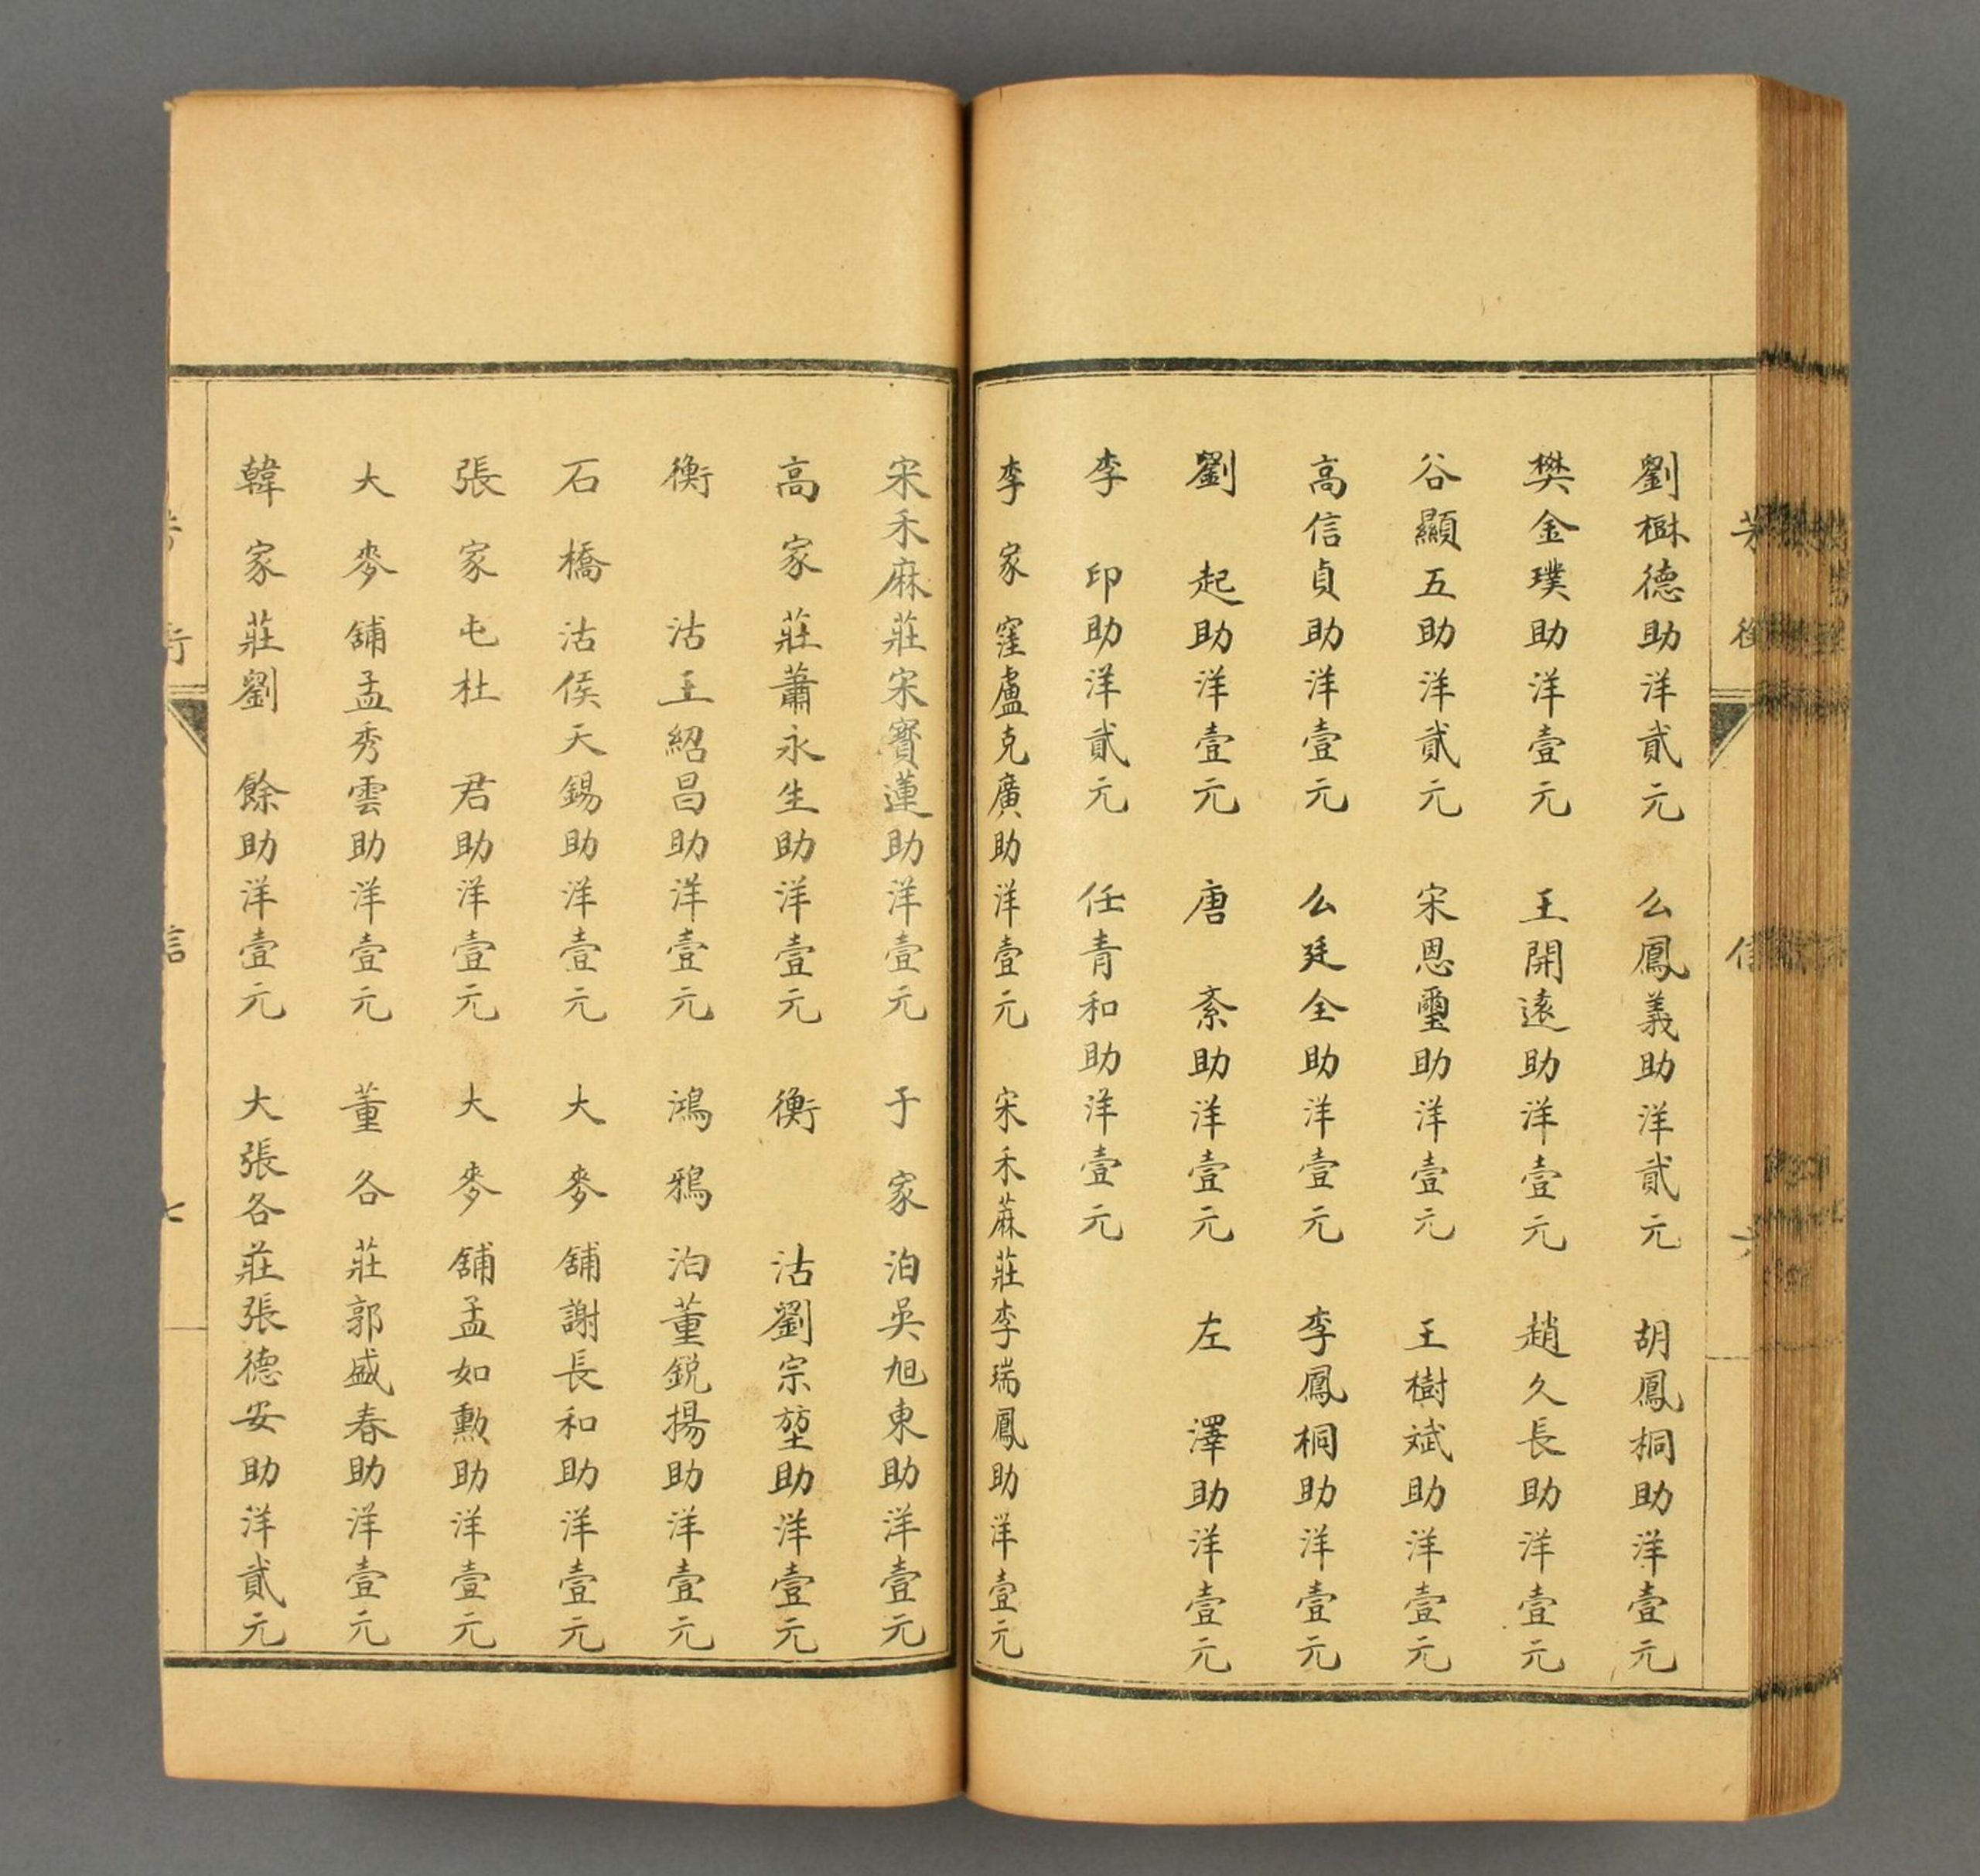 劉樹德助洋貳元 么鳳義助洋貳元 胡鳳桐助洋壹元
樊金璞助洋壹元 王開遠助洋壹元 趙久長助洋壹元
谷顯五助洋貳元 宋恩璽助洋壹元 王樹斌助洋壹元
高信貞助洋壹元 么廷全助洋壹元 李鳳桐助洋壹元
劉起助洋壹元 唐紊助洋壹元 左澤助洋壹元
李印助洋貳元 任青和助洋壹元
李家窪盧克廣助洋壹元 宋禾蔴莊李瑞鳳助洋壹元
宋禾麻莊宋寶蓮助洋壹元 于家泊吳旭東助洋壹元
高家莊蕭永生助洋壹元 衡沽劉宗堃助洋壹元
衡沽王紹昌助洋壹元 鴻鴉泊董銳揚助洋壹元
石橋沽侯天錫助洋壹元 大麥舖謝長和助洋壹元
張家屯杜君助洋壹元 大麥舖孟如勲助洋壹元
大麥舖孟秀雲助洋壹元 董各莊郭盛春助洋壹元
韓家莊劉餘助洋壹元 大張各莊張德安助洋貳元
信
七